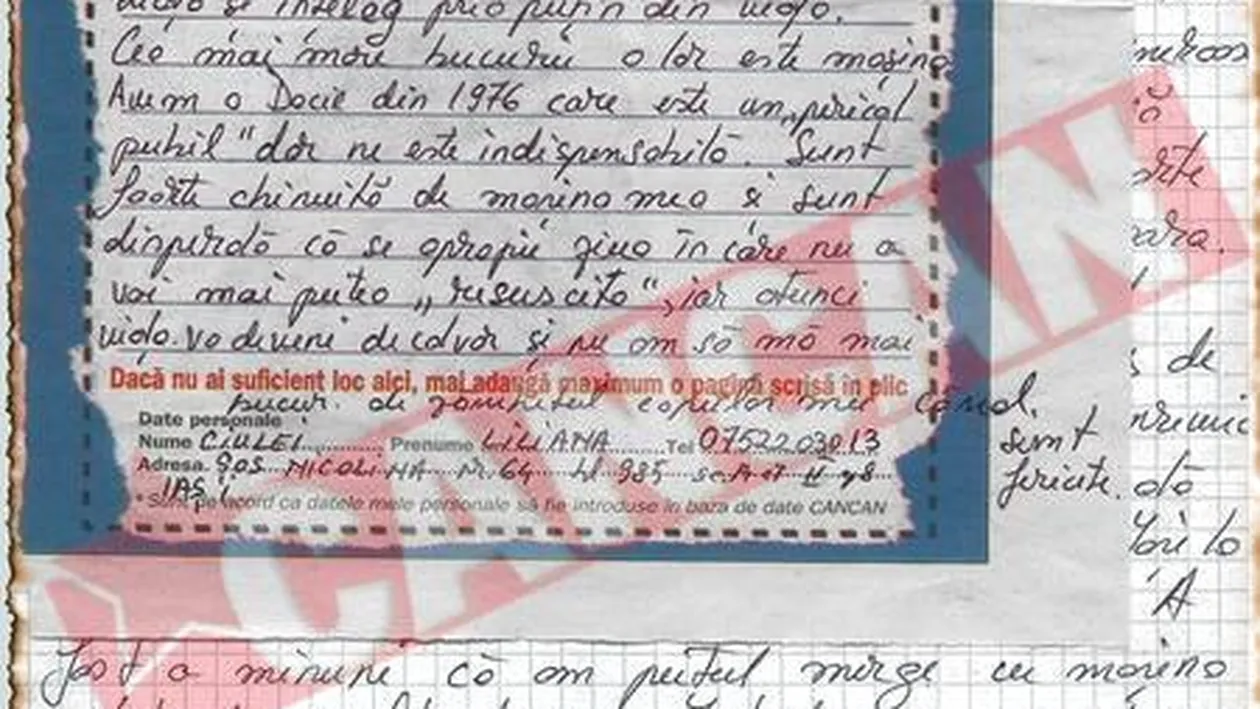 și înțeleg prea puțin din viața.
Cea mai mare bucurie a lor este mașina
Avem o Dacie din 1976 care este un „pericol
public" dar ne este indispensabilă. Sunt
foarte chinuită de mașina mea și sunt
disperată că se apropie ziua în care nu o
voi mai putea „resuscita", iar atunci
viața va deveni de calvar și nu am să mă mai
Dacă nu ai suficient loc aici, mai adaugă maximum o pagină scrisă în plic
bucur de zâmbetul copiilor mei când
sunt
fericite.
Date personale
Nume CIULEI Prenume LILIANA Tel 0752203013
Adresa. ȘOS NICOLINA Nr. 64 bl 985 sc. A et II
IAȘI
* Sunt de acord ca datele mele personale să fie introduse în baza de date CANCAN
CANCAN
de
A
fost o minune că am putut merge cu mașina